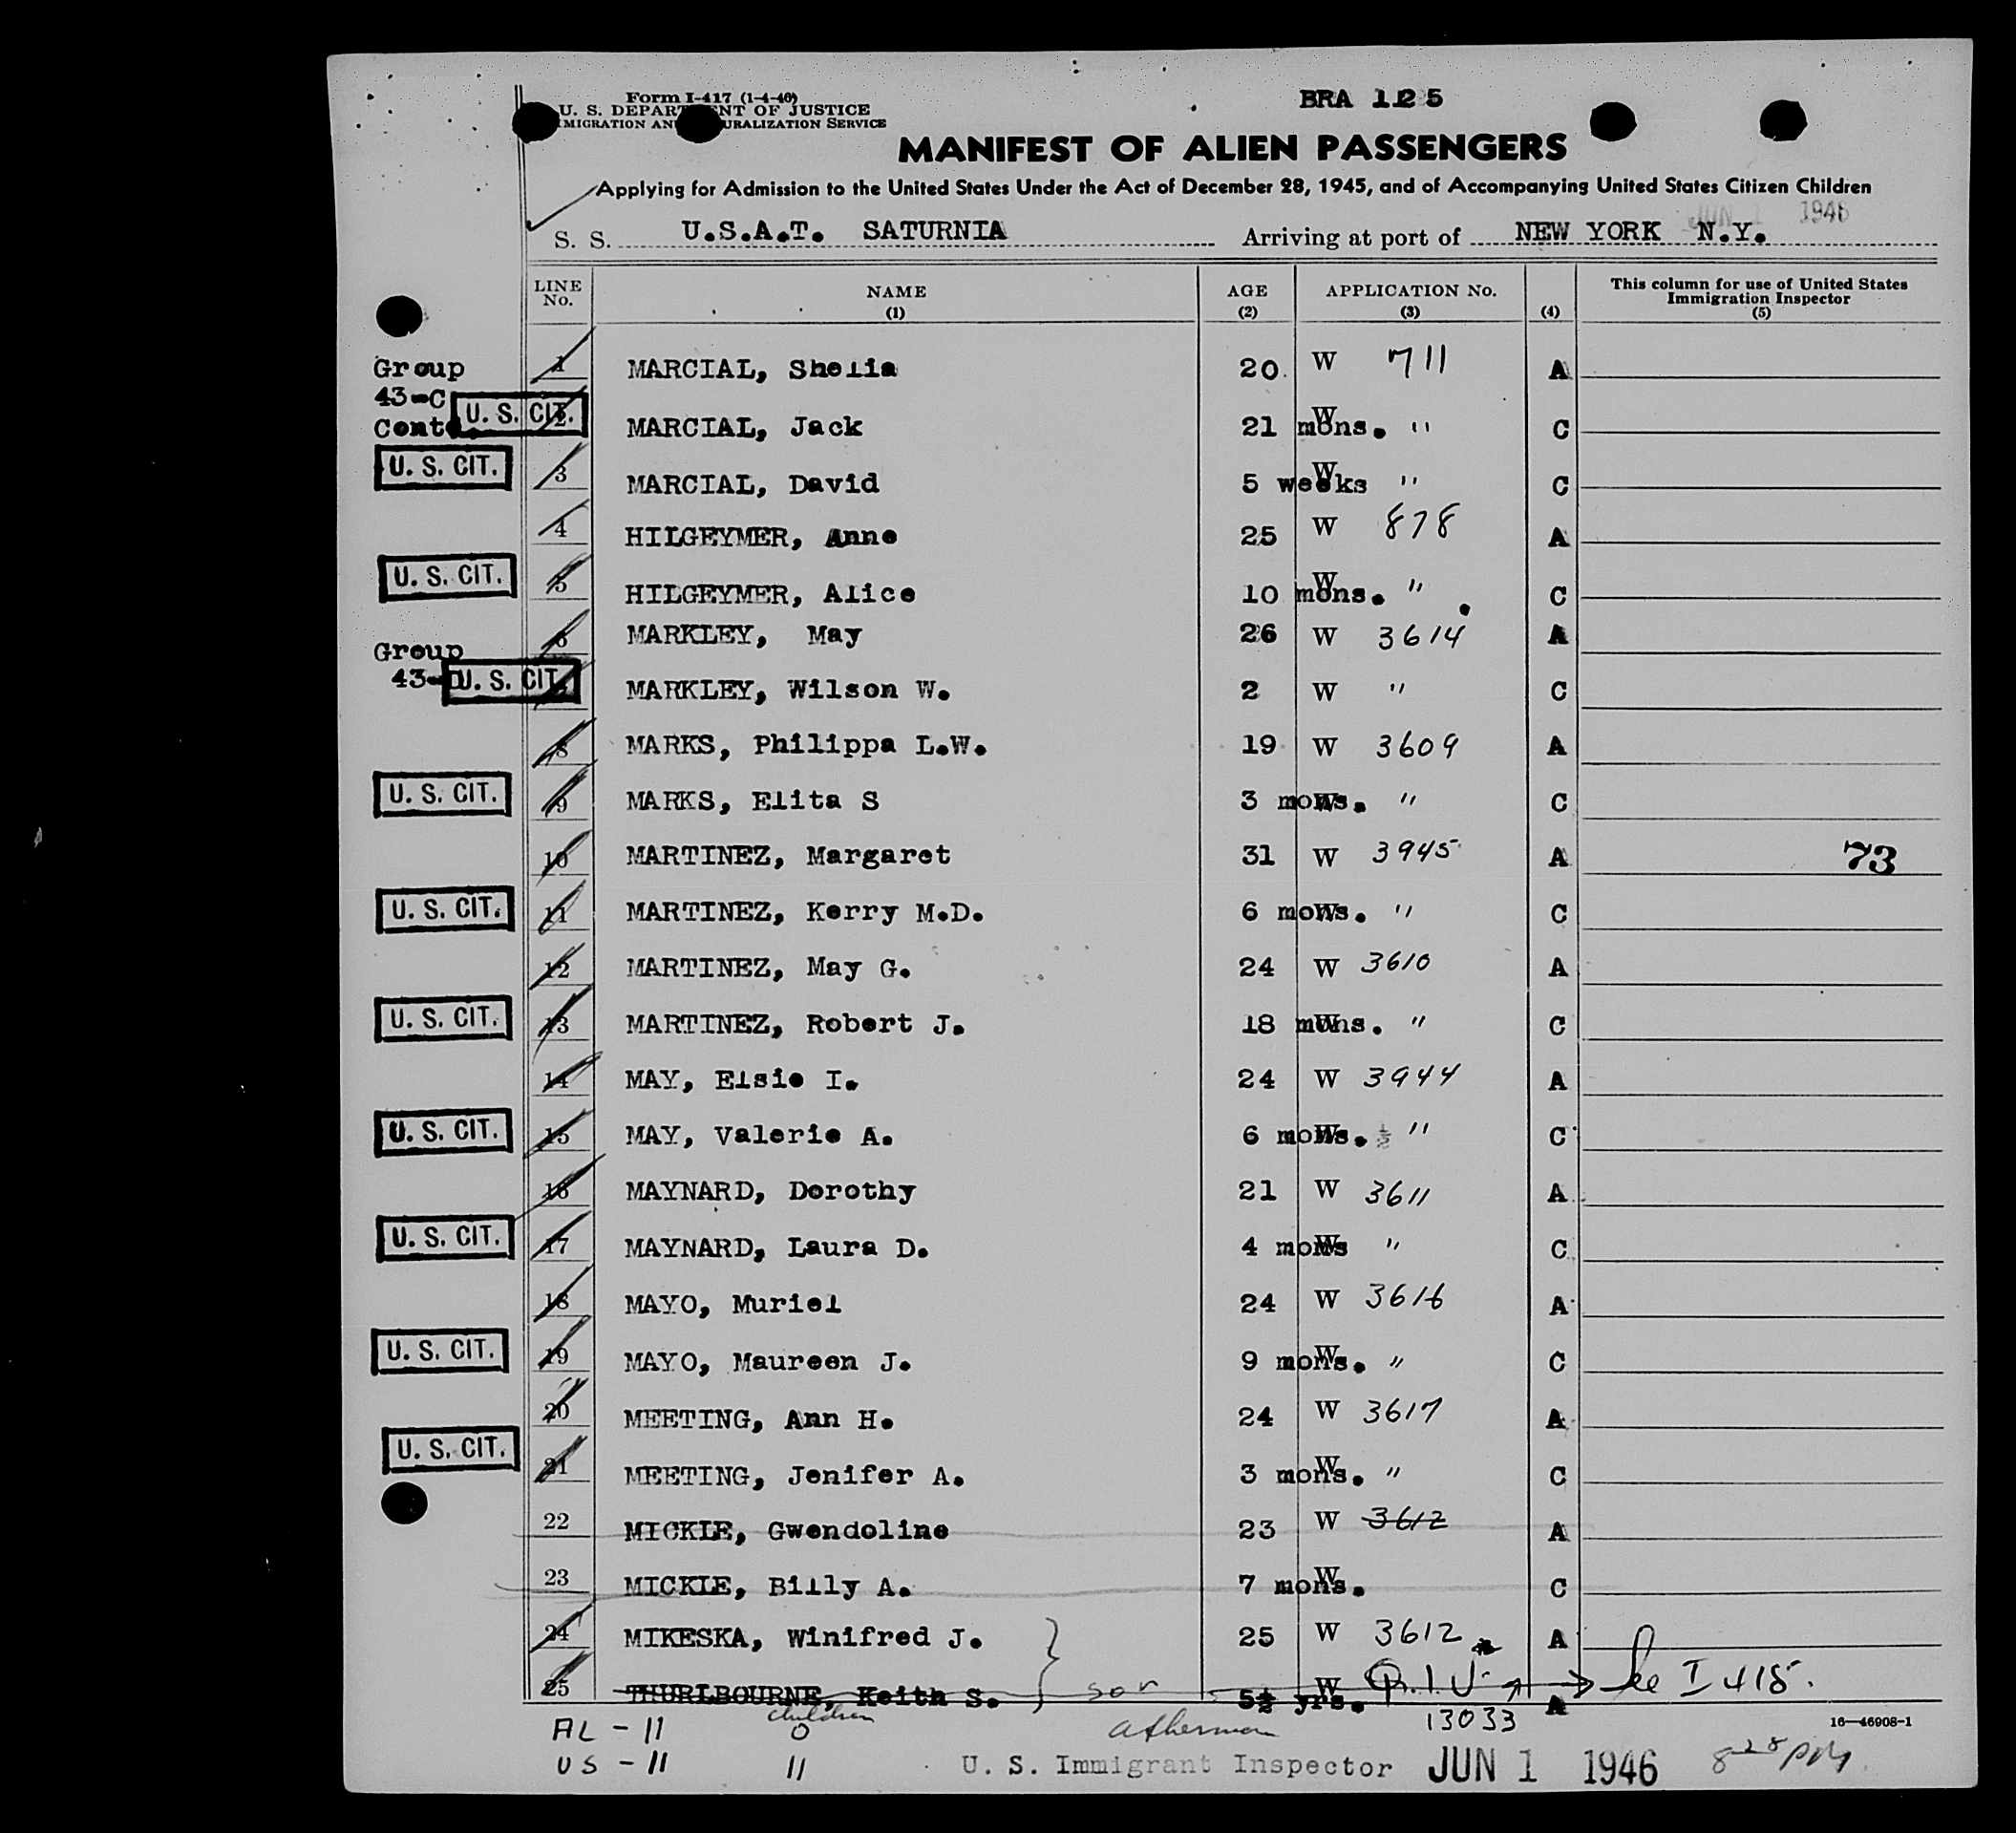 Form I-417 (1-4-46)
U. S. DEPARTMENT OF JUSTICE
IMMIGRATION AND NATURALIZATION SERVICE
BRA 125
MANIFEST OF ALIEN PASSENGERS
Applying for Admission to the United States Under the Act of December 28, 1945, and of Accompanying United States Citizen Children
JUN 1 1946
S. S. U.S.A.T. SATURNIA Arriving at port of NEW YORK N.Y.
LINE No. NAME (1) AGE (2) APPLICATION No. (3) (4) This column for use of United States Immigration Inspector (5)
Group 43-C Contd. 1 MARCIAL, Shelia 20 W 711 A
U. S. CIT. 2 MARCIAL, Jack 21 mons. W " C
U. S. CIT. 3 MARCIAL, David 5 weeks W " C
4 HILGEYMER, Anne 25 W 878 A
U. S. CIT. 5 HILGEYMER, Alice 10 mons. W " C
Group 43-D 6 MARKLEY, May 26 W 3614 A
U. S. CIT. 7 MARKLEY, Wilson W. 2 W " C
8 MARKS, Philippa L.W. 19 W 3609 A
U. S. CIT. 9 MARKS, Elita S 3 mons. W " C
10 MARTINEZ, Margaret 31 W 3945 A 73
U. S. CIT. 11 MARTINEZ, Kerry M.D. 6 mons. W " C
12 MARTINEZ, May G. 24 W 3610 A
U. S. CIT. 13 MARTINEZ, Robert J. 18 mons. W " C
14 MAY, Elsie I. 24 W 3944 A
U. S. CIT. 15 MAY, Valerie A. 6 mons. W ½ " C
16 MAYNARD, Dorothy 21 W 3611 A
U. S. CIT. 17 MAYNARD, Laura D. 4 mons W " C
18 MAYO, Muriel 24 W 3616 A
U. S. CIT. 19 MAYO, Maureen J. 9 mons. W " C
20 MEETING, Ann H. 24 W 3617 A
U. S. CIT. 21 MEETING, Jenifer A. 3 mons. W " C
22 MICKLE, Gwendoline 23 W 3612 A
23 MICKLE, Billy A. 7 mons. W C
24 MIKESKA, Winifred J. 25 W 3612 A
25 THURLBOURNE, Keith S. son 5½ yrs. W A I 415.
13033
16—46908-1
AL - 11 children 0
US - 11 11
U. S. Immigrant Inspector JUN 1 1946 8 28 PM